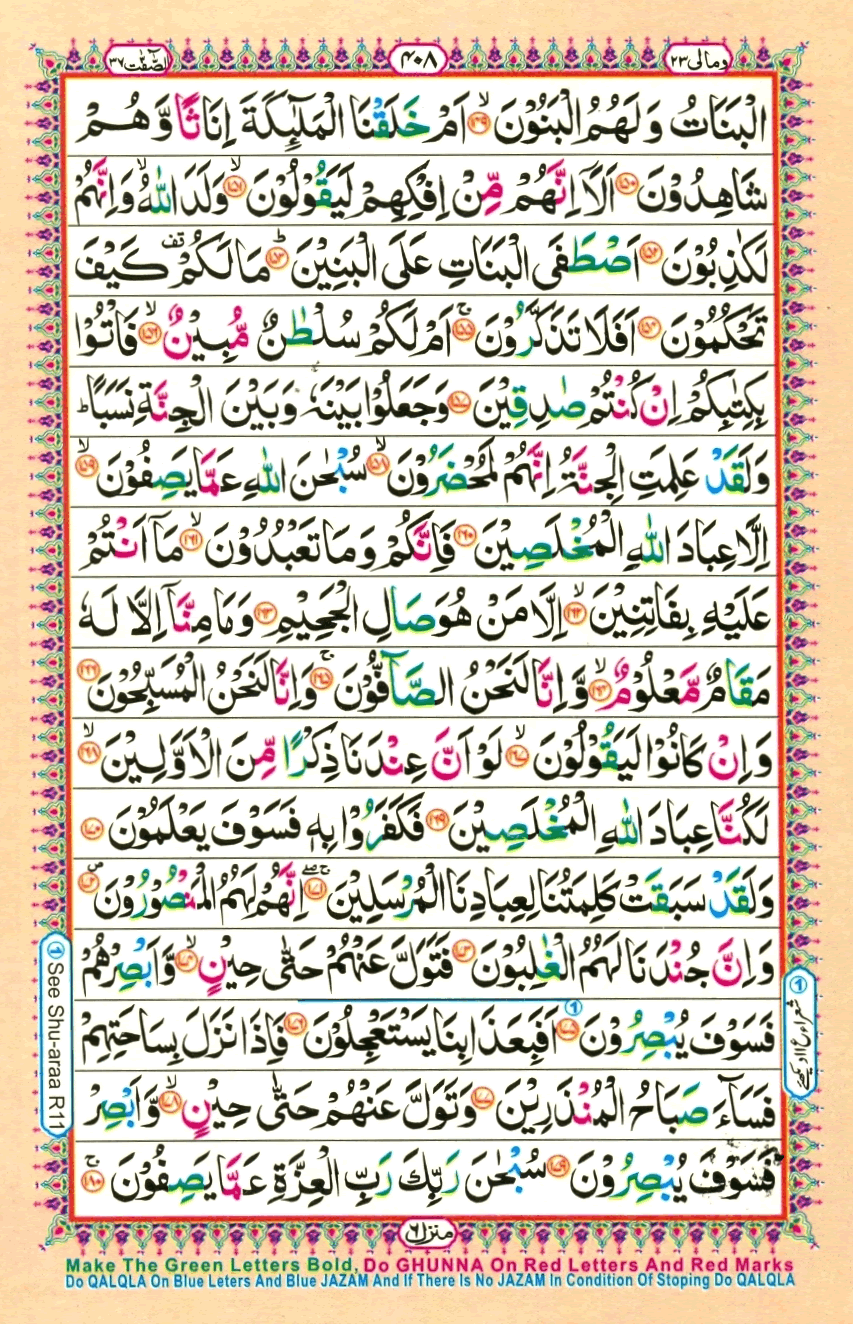 والصّٰفّٰت ٣٧
۴۰۸
ومالی ٢٣
الْبَنَاتُ وَلَهُمُ الْبَنُوْنَ ۙ﴿۱۴۹﴾ اَمْ خَلَقْنَا الْمَلٰٓئِكَةَ اِنَاثًا وَّهُمْ
شَاهِدُوْنَ ﴿۱۵۰﴾ اَلَاۤ اِنَّهُمْ مِّنْ اِفْكِهِمْ لَيَقُوْلُوْنَ ۙ﴿۱۵۱﴾ وَلَدَ اللّٰهُ ۙ وَاِنَّهُمْ
لَكٰذِبُوْنَ ﴿۱۵۲﴾ اَصْطَفَى الْبَنَاتِ عَلَى الْبَنِيْنَ ؕ﴿۱۵۳﴾ مَا لَكُمْ ۫ كَيْفَ
تَحْكُمُوْنَ ﴿۱۵۴﴾ اَفَلَا تَذَكَّرُوْنَ ۚ﴿۱۵۵﴾ اَمْ لَكُمْ سُلْطٰنٌ مُّبِيْنٌ ۙ﴿۱۵۶﴾ فَاْتُوْا
بِكِتٰبِكُمْ اِنْ كُنْتُمْ صٰدِقِيْنَ ﴿۱۵۷﴾ وَجَعَلُوْا بَيْنَهٗ وَبَيْنَ الْجِنَّةِ نَسَبًا ؕ
وَلَقَدْ عَلِمَتِ الْجِنَّةُ اِنَّهُمْ لَمُحْضَرُوْنَ ۙ﴿۱۵۸﴾ سُبْحٰنَ اللّٰهِ عَمَّا يَصِفُوْنَ ۙ﴿۱۵۹﴾
اِلَّا عِبَادَ اللّٰهِ الْمُخْلَصِيْنَ ﴿۱۶۰﴾ فَاِنَّكُمْ وَمَا تَعْبُدُوْنَ ۙ﴿۱۶۱﴾ مَاۤ اَنْتُمْ
عَلَيْهِ بِفَاتِنِيْنَ ۙ﴿۱۶۲﴾ اِلَّا مَنْ هُوَ صَالِ الْجَحِيْمِ ﴿۱۶۳﴾ وَمَا مِنَّاۤ اِلَّا لَهٗ
مَقَامٌ مَّعْلُوْمٌ ۙ﴿۱۶۴﴾ وَّاِنَّا لَنَحْنُ الصَّآفُّوْنَ ۚ﴿۱۶۵﴾ وَاِنَّا لَنَحْنُ الْمُسَبِّحُوْنَ ﴿۱۶۶﴾
وَاِنْ كَانُوْا لَيَقُوْلُوْنَ ۙ﴿۱۶۷﴾ لَوْ اَنَّ عِنْدَنَا ذِكْرًا مِّنَ الْاَوَّلِيْنَ ۙ﴿۱۶۸﴾
لَكُنَّا عِبَادَ اللّٰهِ الْمُخْلَصِيْنَ ﴿۱۶۹﴾ فَكَفَرُوْا بِهٖ فَسَوْفَ يَعْلَمُوْنَ ﴿۱۷۰﴾
وَلَقَدْ سَبَقَتْ كَلِمَتُنَا لِعِبَادِنَا الْمُرْسَلِيْنَ ۚۖ﴿۱۷۱﴾ اِنَّهُمْ لَهُمُ الْمَنْصُوْرُوْنَ ۪﴿۱۷۲﴾
وَاِنَّ جُنْدَنَا لَهُمُ الْغٰلِبُوْنَ ﴿۱۷۳﴾ فَتَوَلَّ عَنْهُمْ حَتّٰى حِيْنٍ ۙ﴿۱۷۴﴾ وَّاَبْصِرْهُمْ
فَسَوْفَ يُبْصِرُوْنَ ﴿۱۷۵﴾ اَفَبِعَذَابِنَا يَسْتَعْجِلُوْنَ ﴿۱۷۶﴾ فَاِذَا نَزَلَ بِسَاحَتِهِمْ
فَسَآءَ صَبَاحُ الْمُنْذَرِيْنَ ﴿۱۷۷﴾ وَتَوَلَّ عَنْهُمْ حَتّٰى حِيْنٍ ۙ﴿۱۷۸﴾ وَّاَبْصِرْ
فَسَوْفَ يُبْصِرُوْنَ ﴿۱۷۹﴾ سُبْحٰنَ رَبِّكَ رَبِّ الْعِزَّةِ عَمَّا يَصِفُوْنَ ۚ﴿۱۸۰﴾
① See Shu-araa R11
منزل ٦
Make The Green Letters Bold, Do GHUNNA On Red Letters And Red Marks
Do QALQLA On Blue Leters And Blue JAZAM And If There Is No JAZAM In Condition Of Stoping Do QALQLA